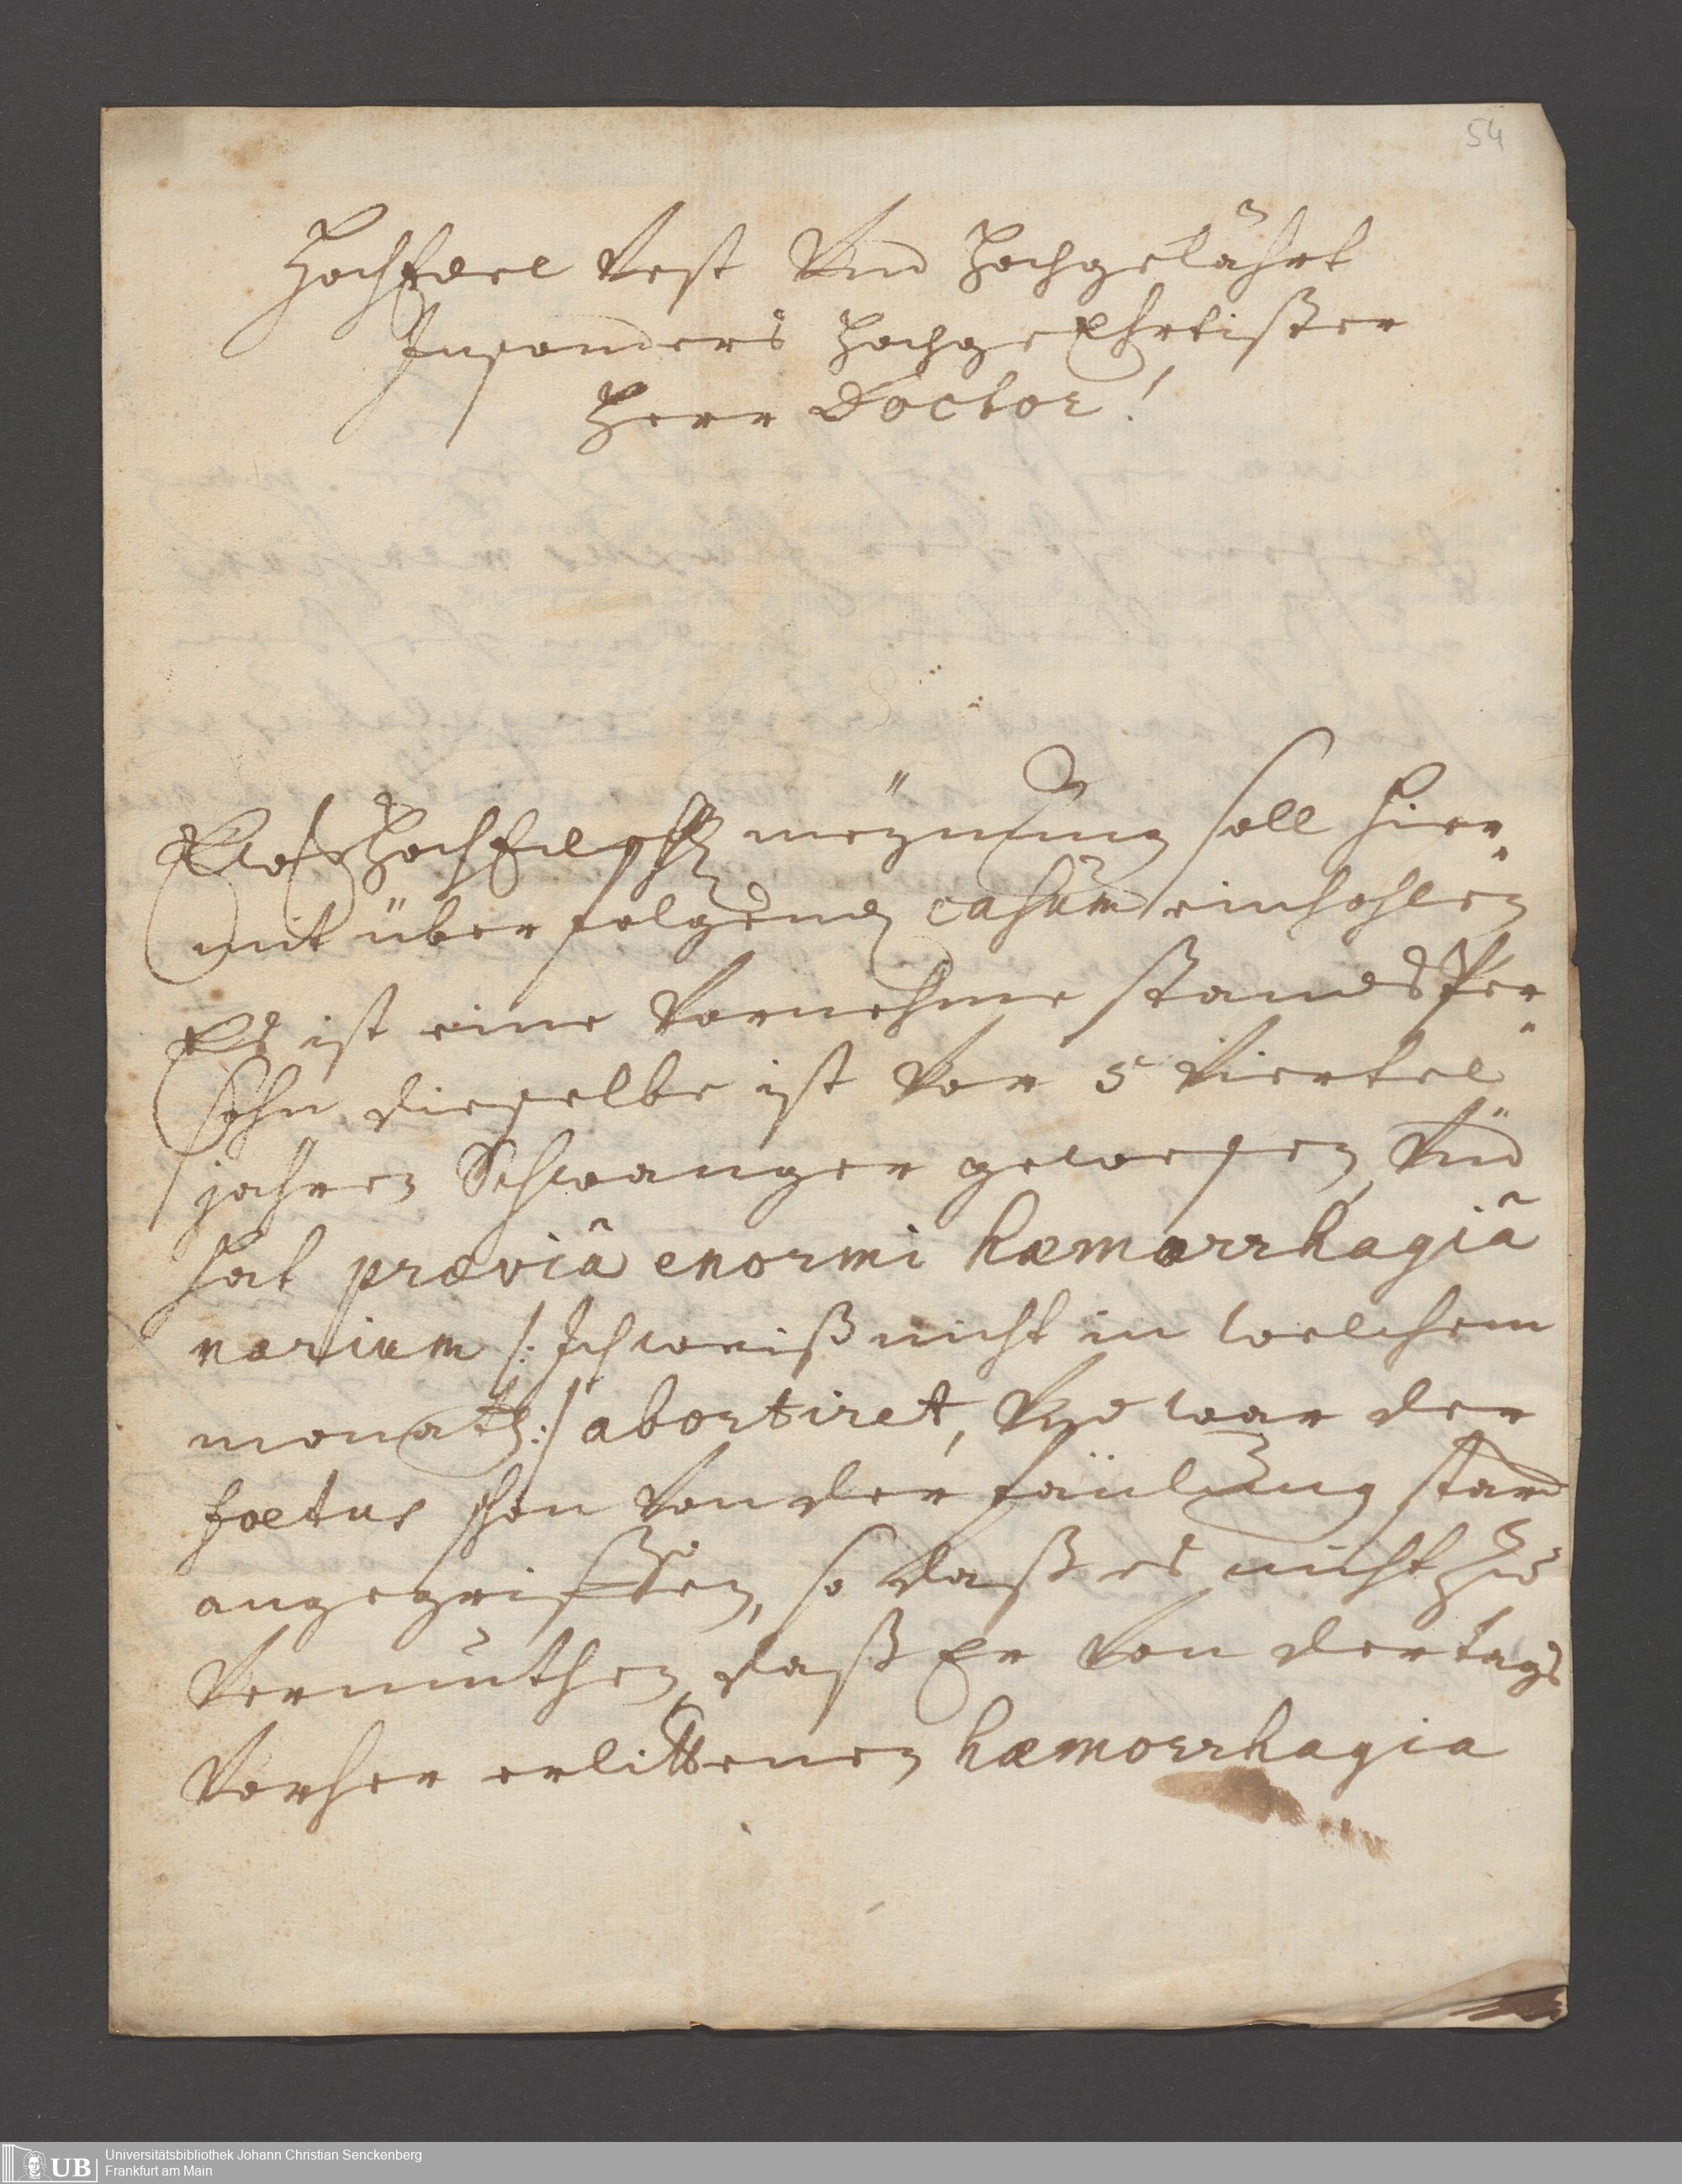 54
HochEdel Vest Und Hochgelährt
Insonders HochgeEhrtister
Herr Doctor!
Ew HochEdl meÿnung soll hier„
mit über folgend casum einhohlen
Es ist eine Vornehme standsPer„
sohn, dieselbe ist Vor 5 Viertel
jahren Schwanger gewesen, Und
hat præviâ enormi hæmorrhagiâ
narium /: Ich weiß nicht in welchem
monath :/ abortiret, Und war der
foetus schon Von der fäulung starck
angegriffen, so daß es nicht zu
Vermuthen daß Er Von der tags
Vorher erlittenen hæmorrhagia
UB
Universitätsbibliothek Johann Christian Senckenberg
Frankfurt am Main